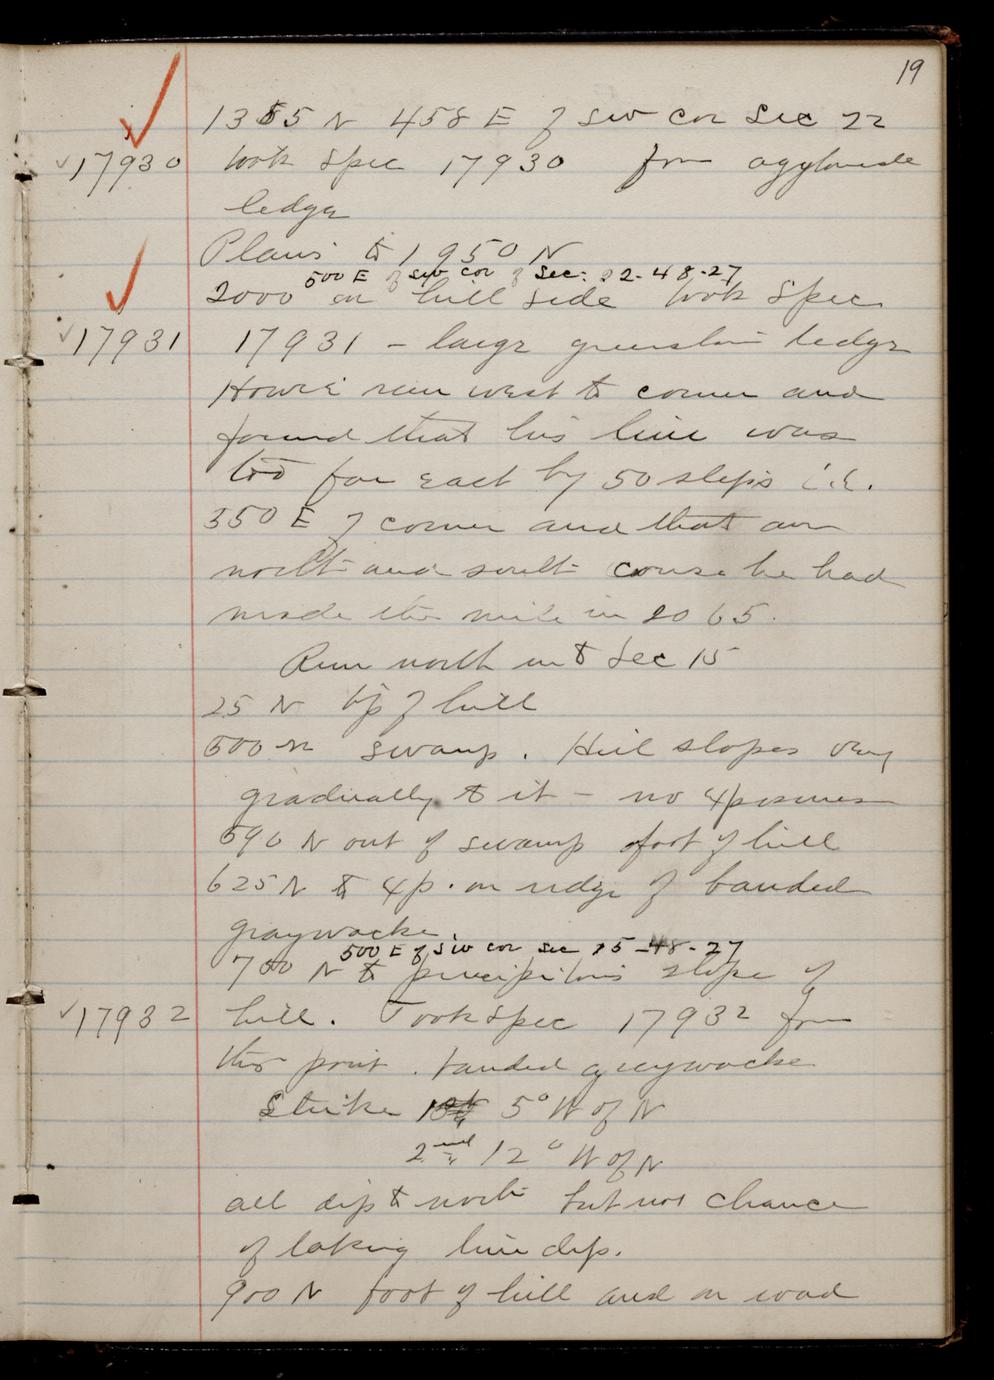 19
1355 N 458 E of SW cor Sec 22
17930 took Spec 17930 from agglomerate
ledge
Plains to 1950 N
500 E of SW cor of Sec. 22-48-27
2000 on hill side took Spec
17931 17931 - large greenstone ledge
Howe run west to corner and
found that his line was
too far east by 50 steps i.e.
350 E of corner and that on
north and south course he had
made the mile in 2065.
Run north into Sec 15
25 N top of hill
500 N swamp. Hill slopes very
gradually to it - no exposures
590 N out of swamp foot of hill
625 N to exp. on ridge of banded
graywacke.
500 E of SW cor sec 15-48-27
700 N to precipitous slope of
17932 hill. Took Spec 17932 from
this point. banded graywacke
Strike 5° W of N
2nd 12° W of N
all dip to north but not chance
of taking line dip.
900 N foot of hill and on road